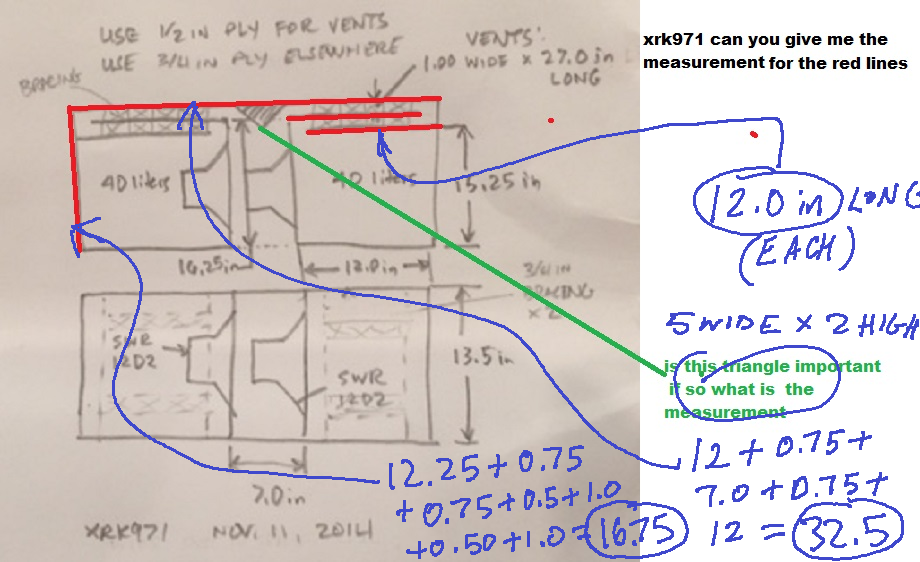 USE 1/2 IN PLY FOR VENTS
USE 3/4 IN PLY ELSEWHERE
VENTS:
1.00 WIDE X 27.0 in
LONG
BRACING
xrk971 can you give me the
measurement for the red lines
40 liters
40 liters
13.25 in
16.25in
12.0in
12.0 in LONG
(EACH)
3/4 IN
BRACING
X 2
5 WIDE X 2 HIGH
SWR
12D2
SWR
12D2
13.5in
is this triangle important
if so what is the
measurement
7.0in
12.25 + 0.75
+ 0.75 + 0.5 + 1.0
+0.50 + 1.0 = 16.75
12 + 0.75 +
7.0 + 0.75 +
12 = 32.5
XRK971 NOV. 11, 2014